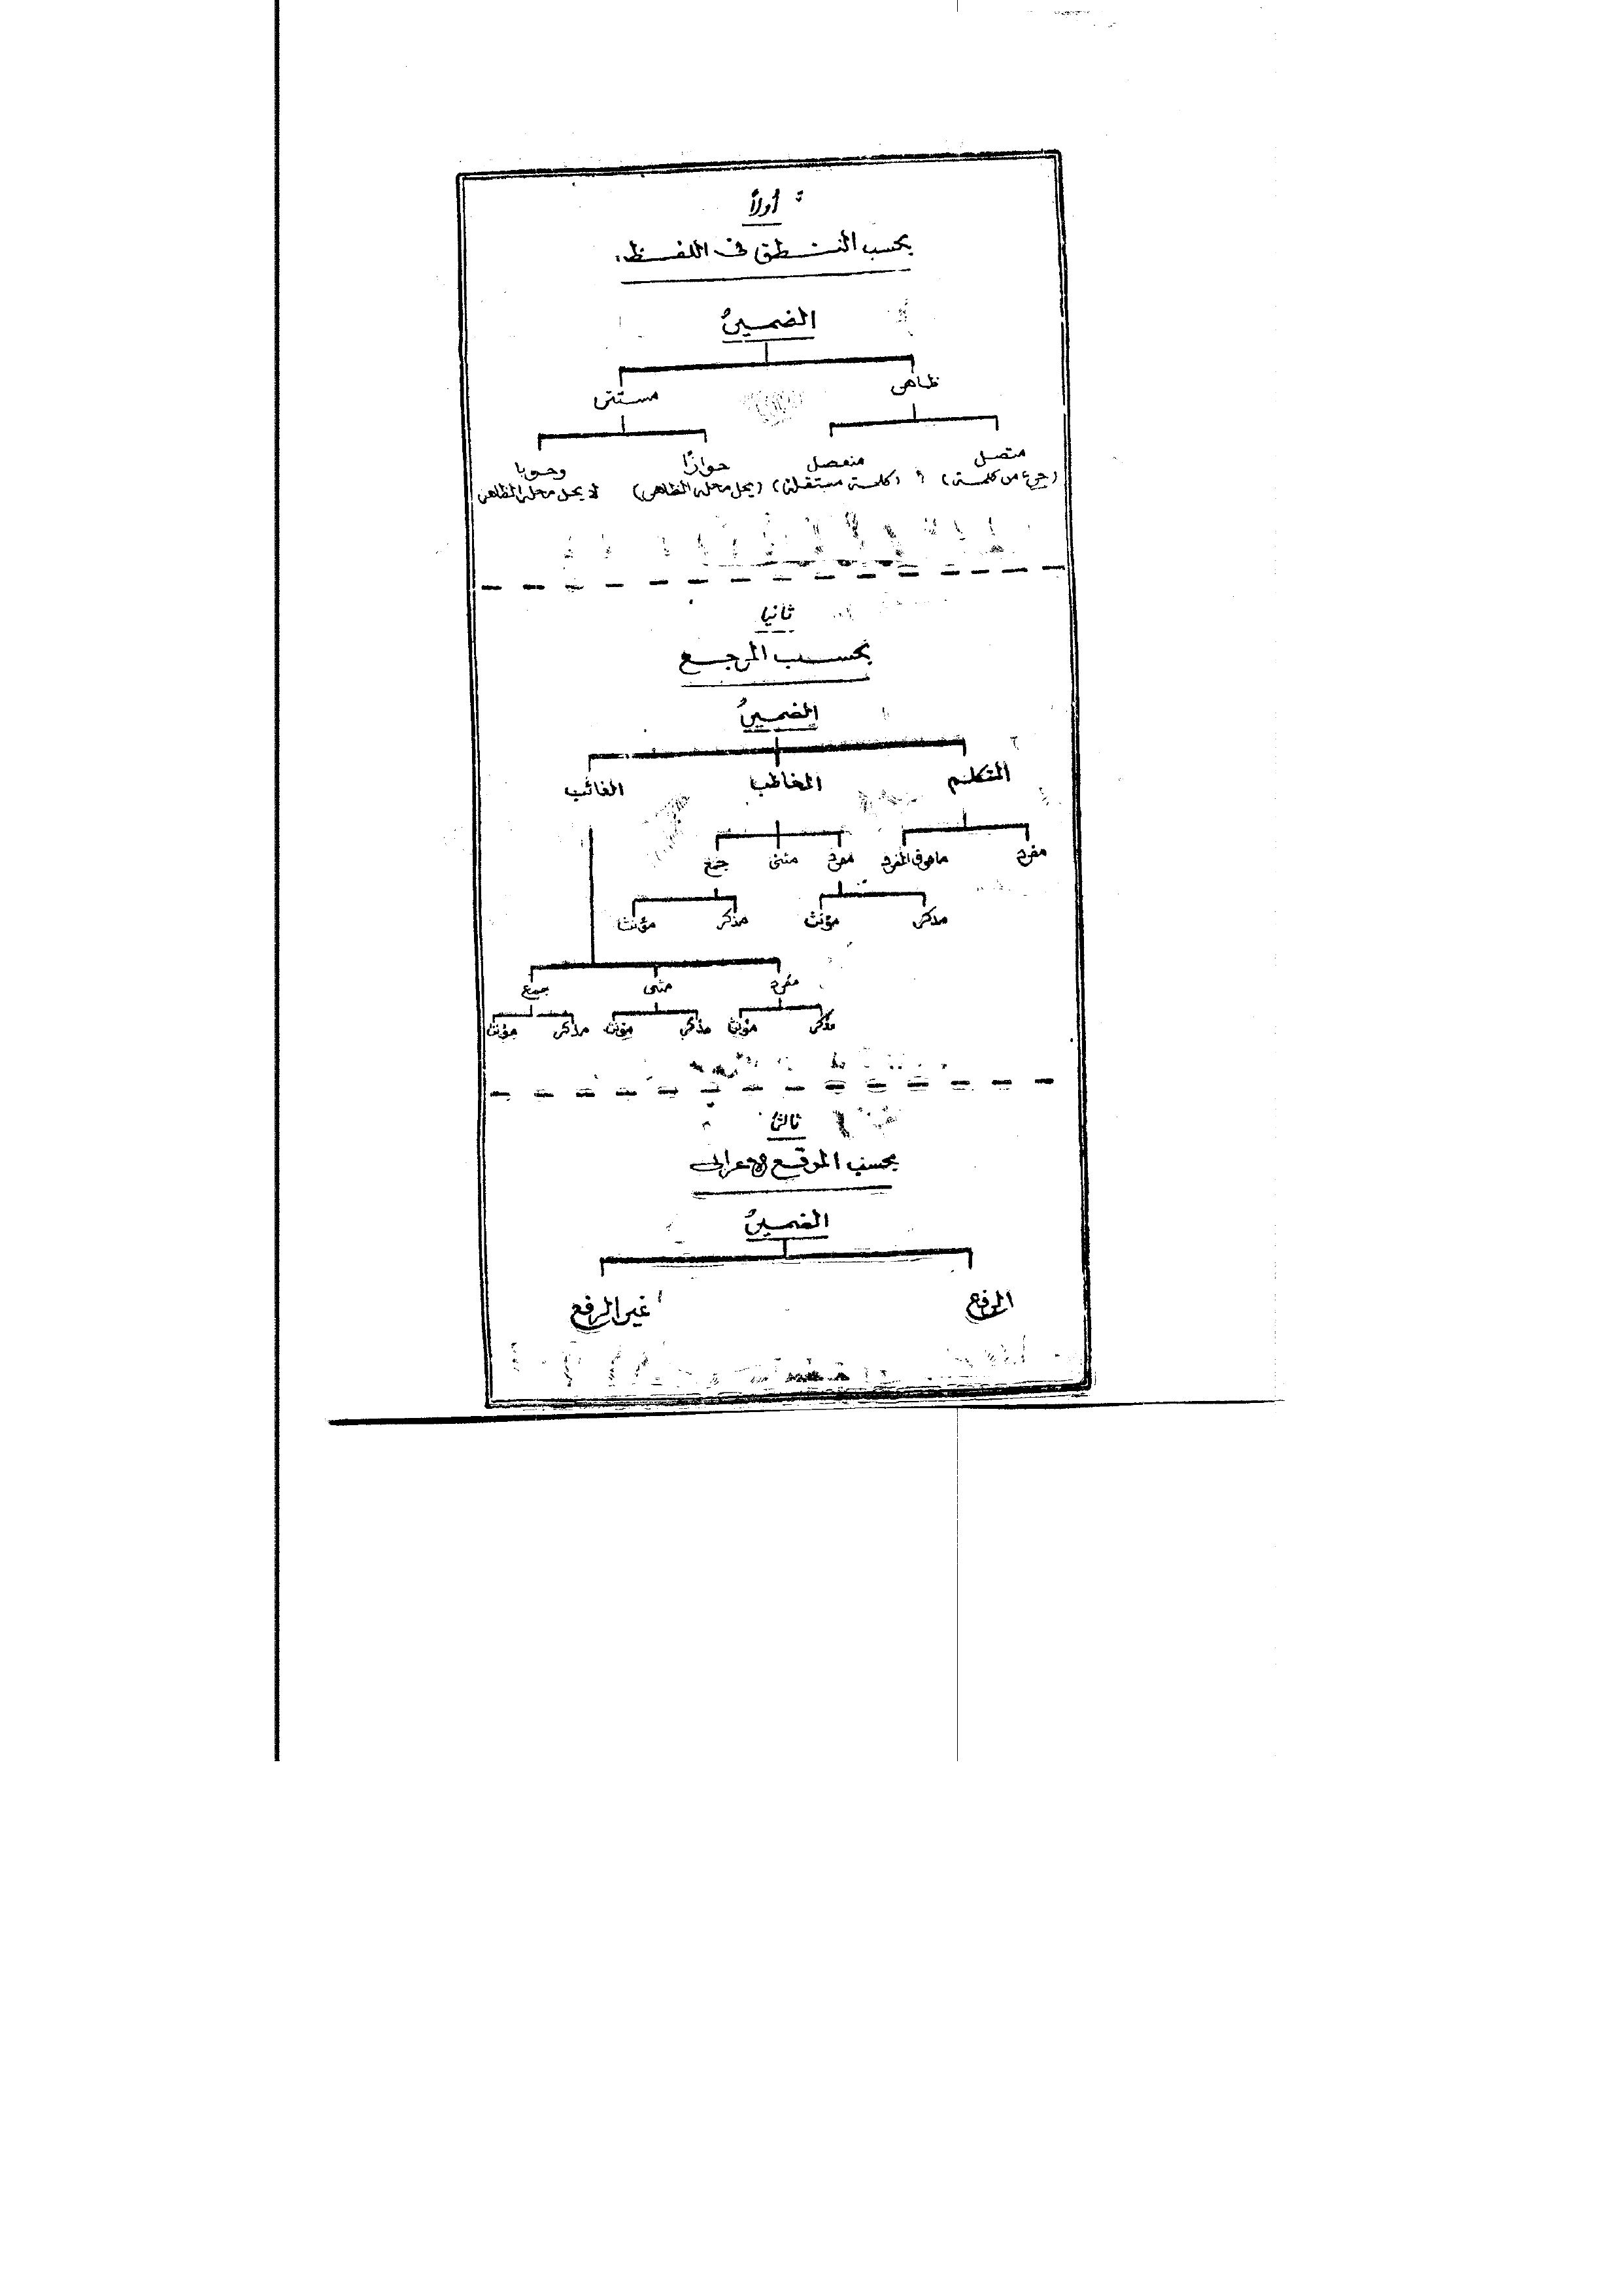 أولاً :
بحسب النطق فى اللفظ .
الضميرُ
ظاهر مستتر
متصل منفصل جوازًا وجوبا
(جزء من كلمة) (كلمة مستقلة) (يحل محله الظاهر) لا يحل محله الظاهر
ثانيا
بحسب المرجع
الضميرُ
المتكلم المخاطب الغائب
مفرد ما فوق المفرد مفرد مثنى جمع
مذكر مؤنث مذكر مؤنث
مفرد مثنى جمع
مذكر مؤنث مذكر مؤنث مذكر مؤنث
ثالثا
بحسب الموقع الإعرابى
الضميرُ
الرفع غير الرفع